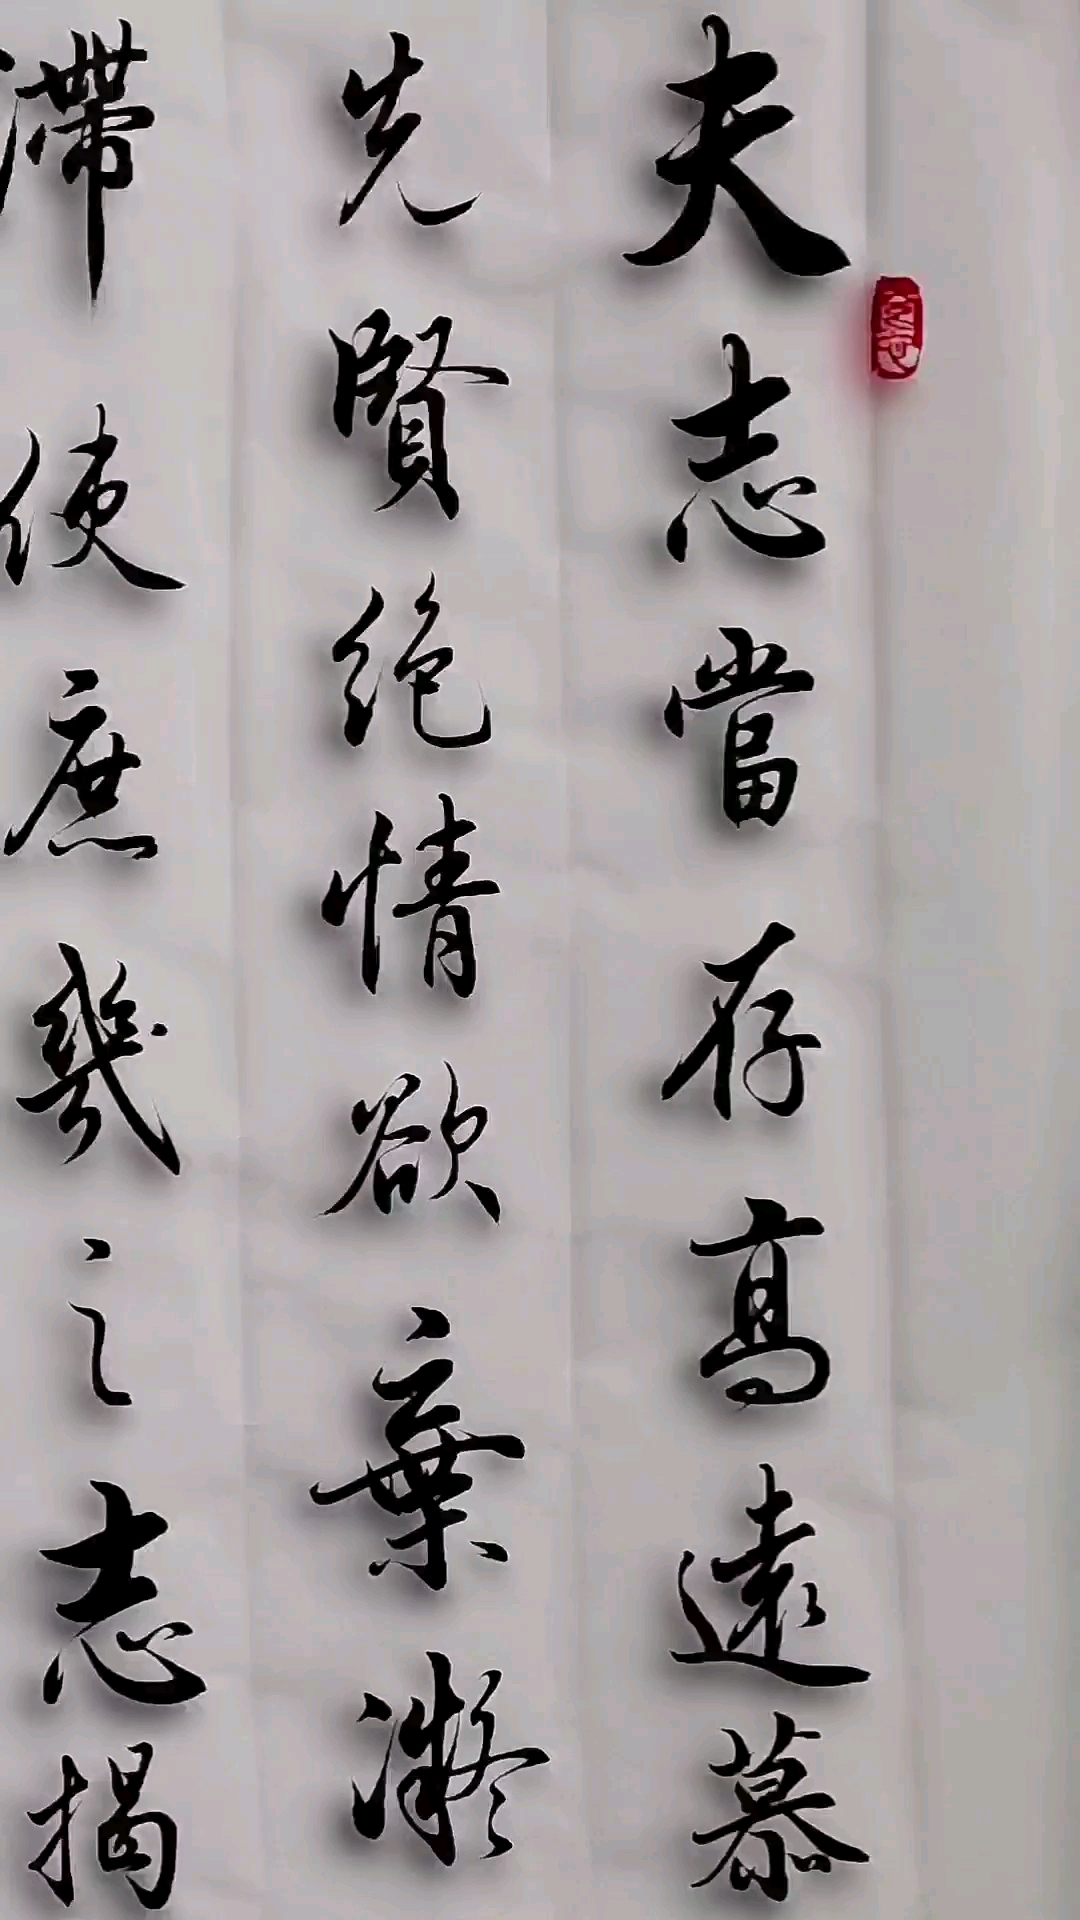 夫志當存高遠慕
先賢絶情欲棄凝
滯使庶幾之志揭